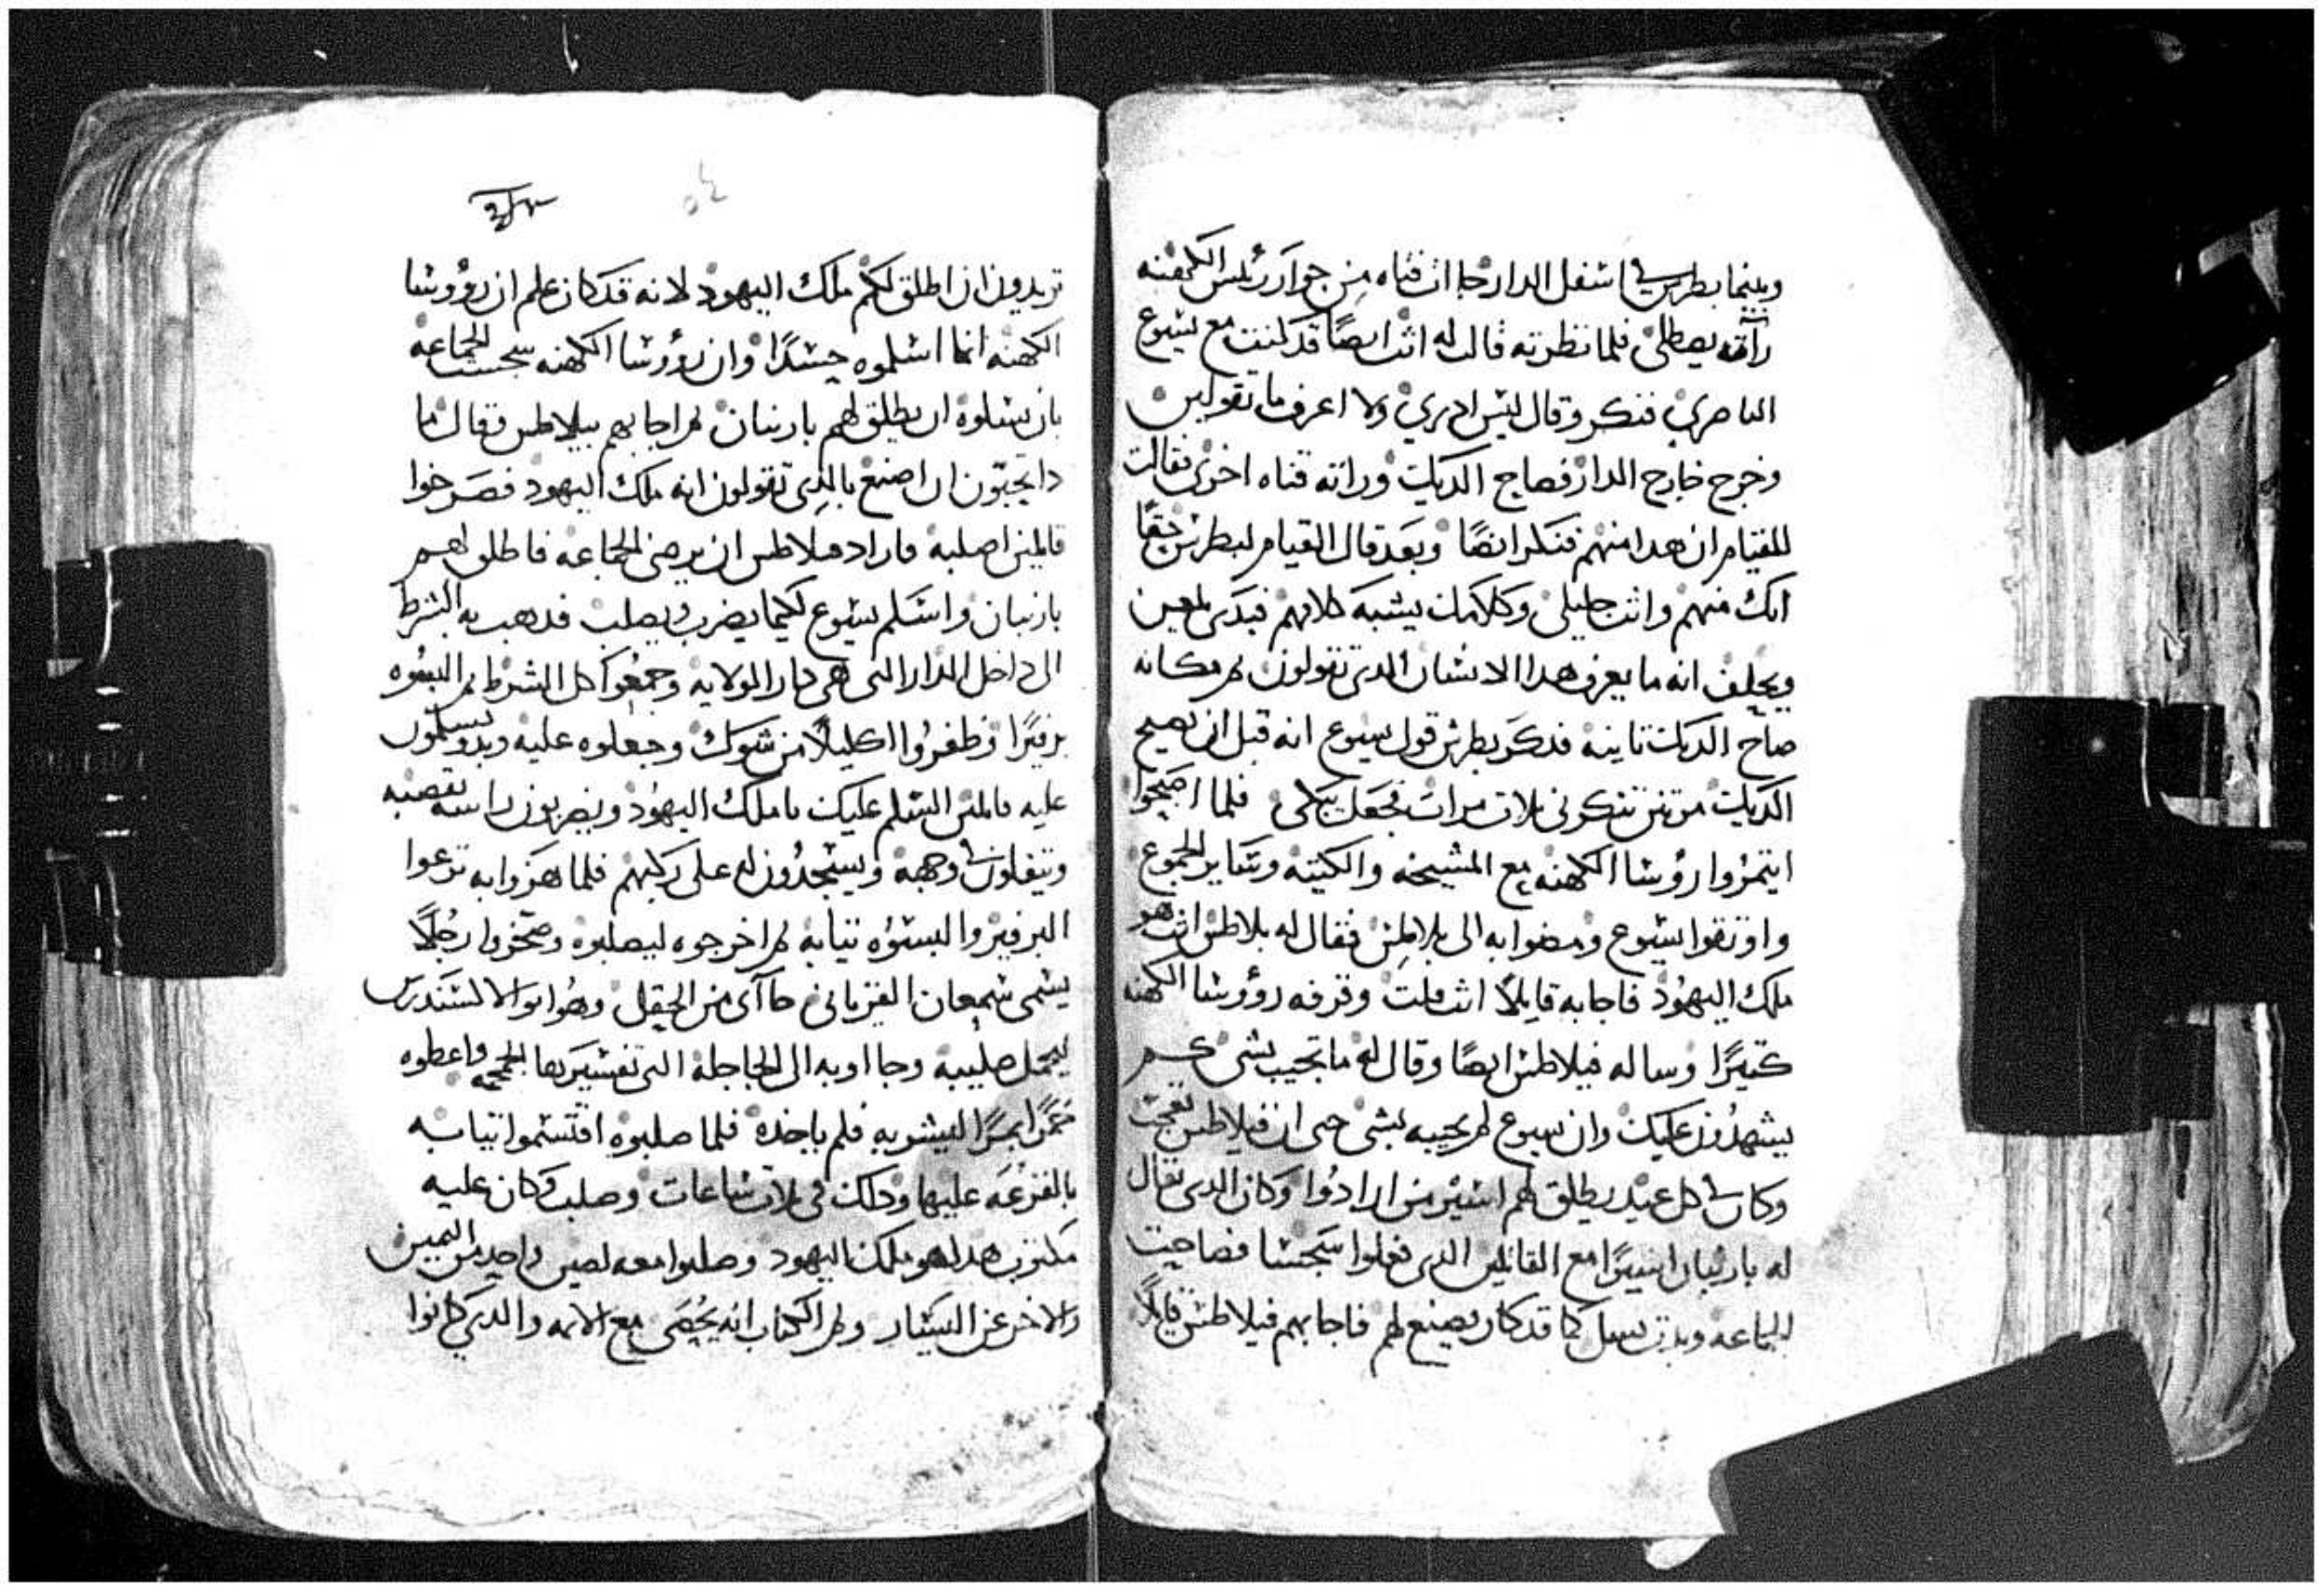 وبينما بطرس في اسفل الدار جاات فتاه من جوار رئيس الكهنه
رأته يصطلي فلما نظرته قالت له انت ايضًا قد كنت مع يسوع
الناصري فنكر وقال ليس ادري ولا اعرف ما تقولين
وخرج خارج الدار فصاح الديك وراته فتاه اخرى فقالت
للقيام ان هدا منهم فنكر ايضًا وبعد قال القيام لبطرس حقًا
انك منهم وانت جليلي وكلامك يشبه كلامهم فبدى يلعن
ويحلف انه ما يعرف هدا الانسان الدي تقولون لم مكانه
صاح الديك تانيه فدكر بطرس قول يسوع انه قبل ان يصيح
الديك مرتين تنكرني تلات مرات فجعل يبكي فلما اصبحوا
ايتمروا رؤوسا الكهنه مع المشيخه والكتبه وساير الجموع
واوتقوا يسوع ومضوا به الى بلاطس فقال له بلاطس انت هو
ملك اليهود فاجابه قايلًا انت قلت وقرفه رؤوسا الكهنه
كتيرًا وساله فيلاطس ايضًا وقال له ما تجيب بشي كم
يشهدون عليك وان يسوع لم يجيبه بشي حتى ان فيلاطس تعجب
وكان في كل عيد يطلق لهم اسير من ارادوا وكان الدي يقال
له باربنان اسيرًا مع القاتلين الدي فعلوا سجسًا فصاحت
الجماعه وبدت تسل كما قد كان يصنع لهم فاجابهم فيلاطس قايلًا
تريدون ان اطلق لكم ملك اليهود لانه قد كان علم ان رؤوسا
الكهنه انما اسلموه حسدًا وان رؤوسا الكهنه سجست الجماعه
بان يسلوه ان يطلق لهم باربنان لم اجابهم بيلاطس وقال ما
دا تحبون ان اصنع بالدي تقولون انه ملك اليهود فصرخوا
قايلين اصلبه فاراد فيلاطس ان يرضي الجماعه فاطلق لهم
باربنان واسلم يسوع لكيما يضرب ويصلب فدهب به الشرط
الى داخل الدار التي هي دار الولايه وجمعوا كل الشرط لم البسوه
برفيرًا وظفروا اكليلًا من شوك وجعلوه عليه وبدو يسلمون
عليه قايلين السلم عليك يا ملك اليهود ويضربون راسه بقصبه
ويتفلون في وجهه ويسجدون له على ركبهم فلما هزوا به نزعوا
البرفير والبسوه تيابه لم اخرجوه ليصلبوه وسخروا رجلًا
يسمى شمعان القيرياني جاآى من الحقل وهو ابو الالسندرس
ليحمل صليبه وجااو به الى الجاجلة التي تفسيرها الجمجمه واعطوه
خمرًا بمرًا ليشربه فلم ياخده فلما صلبوه اقتسموا تيابه
بالقرعه عليها ودلك في تلات ساعات وصلب وكان عليه
مكتوب هدا هو ملك اليهود وصلبوا معه لصين واحد من اليمين
والاخر عن اليسار ولم الكتاب انه يحصى مع الاتمه والدي كانوا